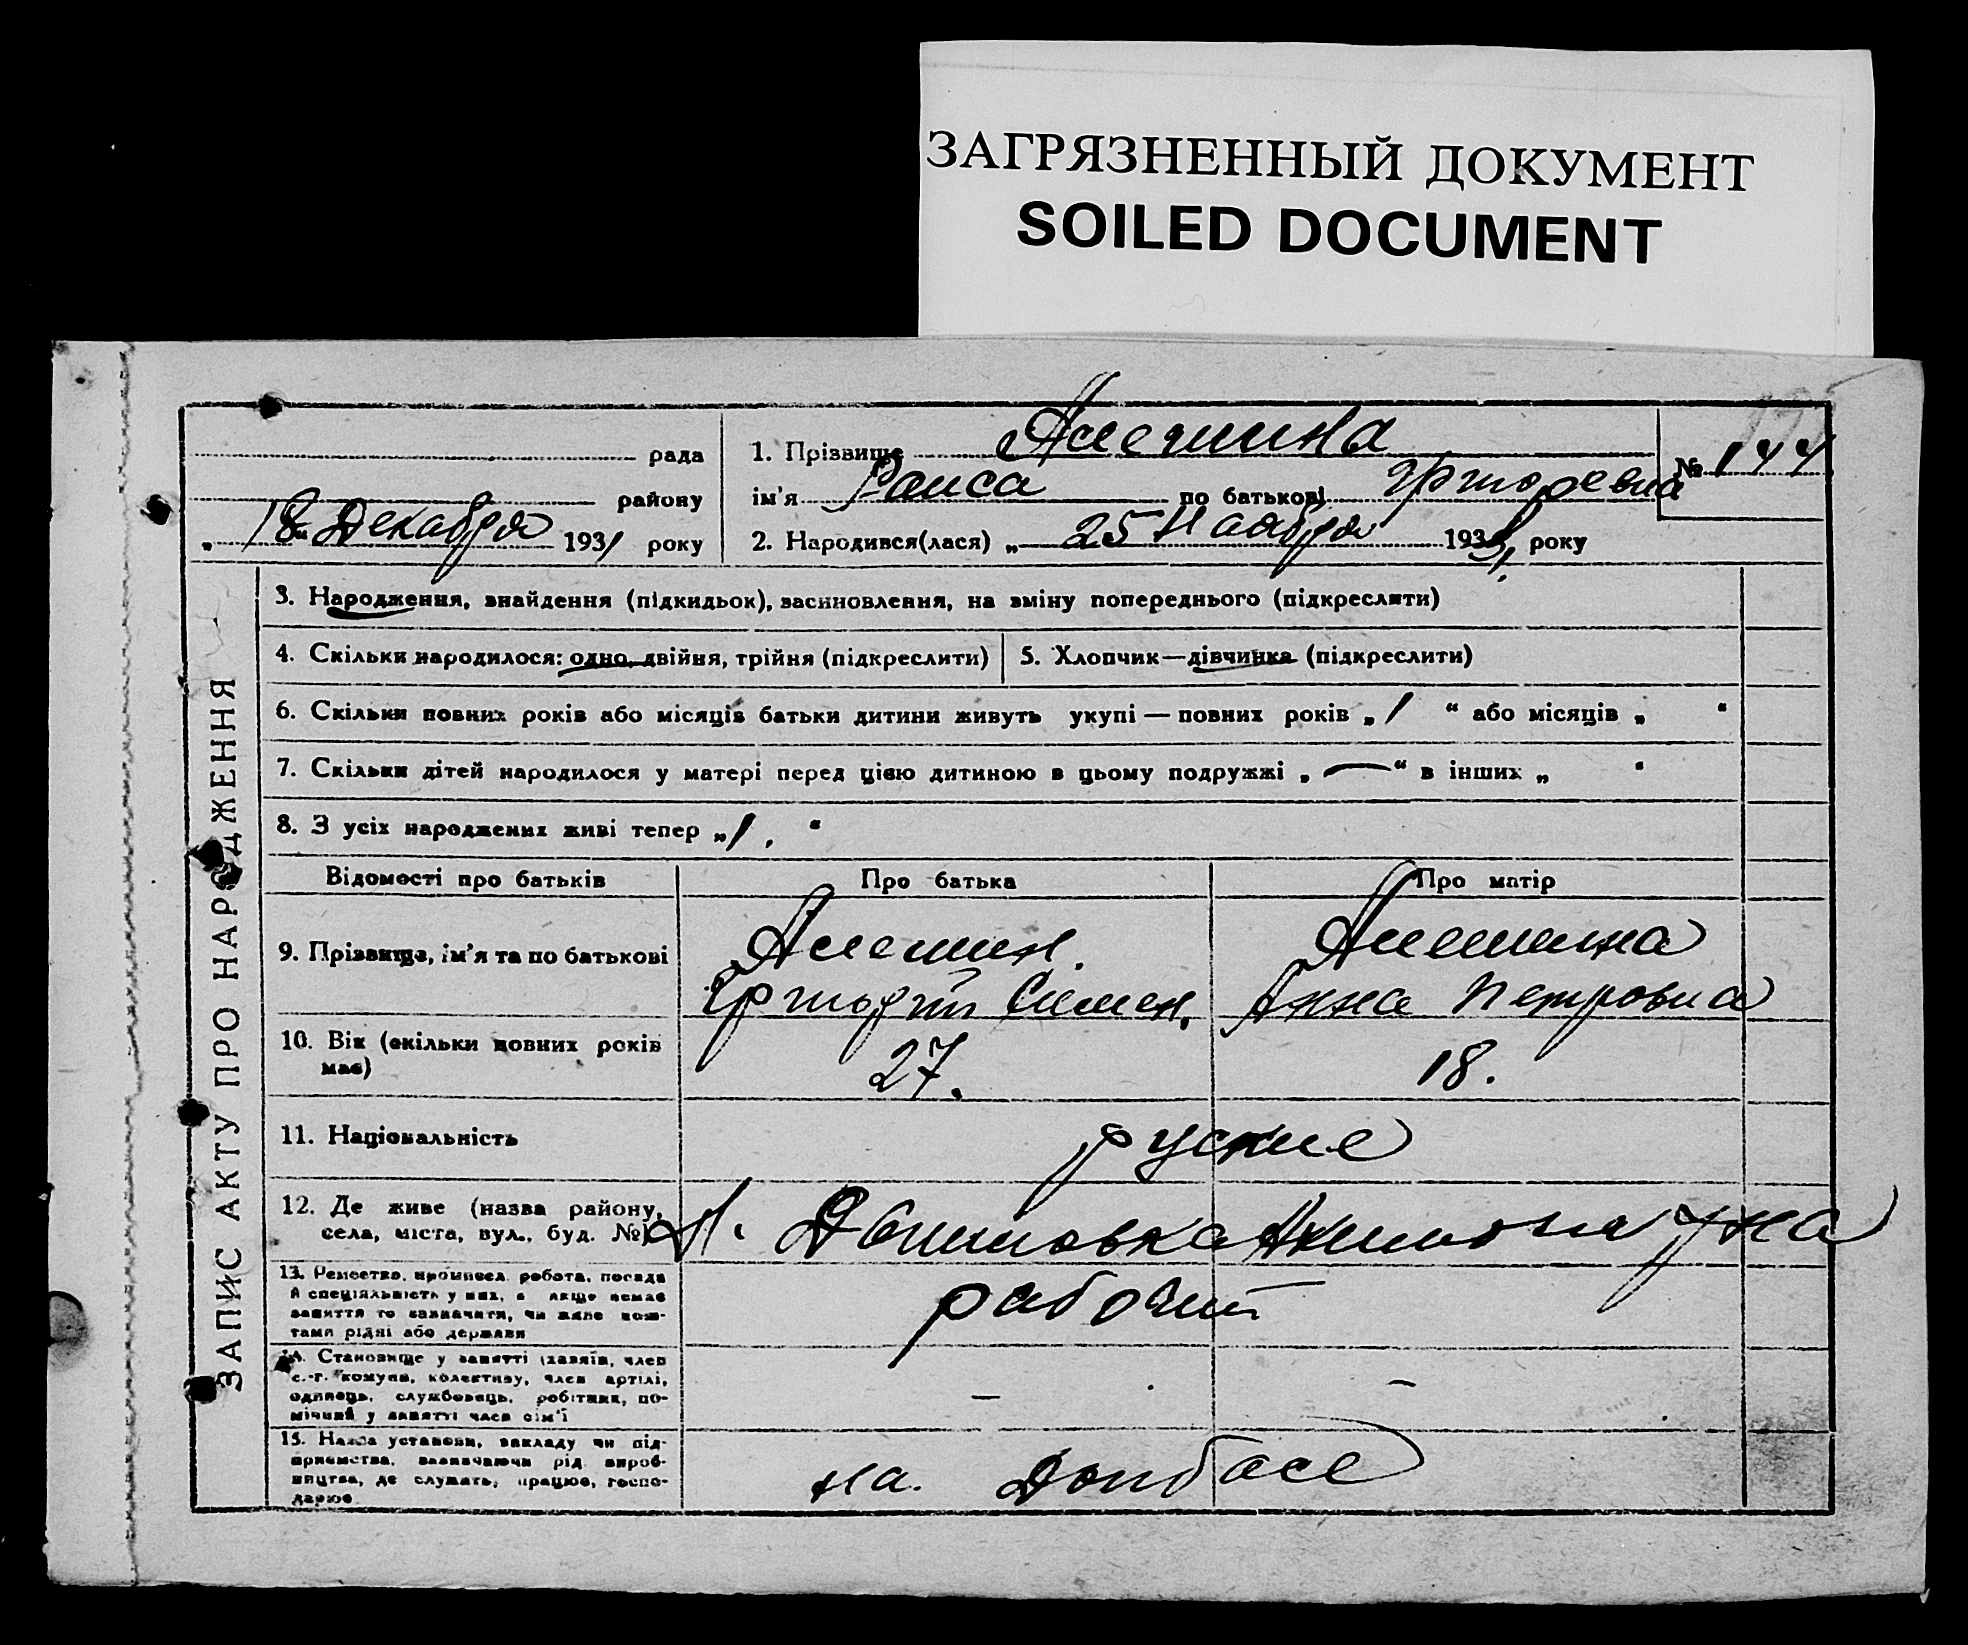 ЗАГРЯЗНЕННЫЙ ДОКУМЕНТ
SOILED DOCUMENT
ЗАПИС АКТУ ПРО НАРОДЖЕННЯ
рада
району
„18“ Декабря 1931 року
1. Прізвище Алешина
ім'я Раиса по батькові Григоревна
№ 144
2. Народився(лася) „25 Ноября 1931 року
3. Народження, знайдення (підкидьок), засиновлення, на зміну попереднього (підкреслити)
4. Скільки народилося: одно, двійня, трійня (підкреслити)
5. Хлопчик—дівчинка (підкреслити)
6. Скільки повних років або місяців батьки дитини живуть укупі — повних років „1“ або місяців „ “
7. Скільки дітей народилося у матері перед цією дитиною в цьому подружжі „—“ в інших „ “
8. З усіх народжених живі тепер „1. “
Відомості про батьків Про батька Про матір
9. Прізвище, ім'я та по батькові
Алешин. Алешина
Григорий Симен. Анна Петровна
10. Вік (скільки повних років
має)
27. 18.
11. Національність
руские
12. Де живе (назва району,
села, міста, вул., буд. №)
13. Ремество, промисел, робота, посада
й спеціяльність у них, а якщо немає
заняття то зазначити, чи живе кош-
тами рідні або держави
рабочий
14. Становище у занятті (хазяїн, член
с.-г. комуни, колективу, член артілі,
одинець, службовець, робітник, по-
мічний у занятті член сім'ї
– –
15. Назва установи, закладу чи під-
приємства, зазначаючи рід вироб-
ництва, де служить, працює, госпо-
дарює
на. Донбасе